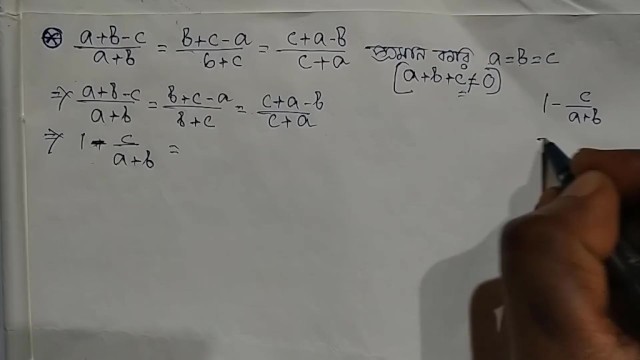 ⊛ (a+b-c)/(a+b) = (b+c-a)/(b+c) = (c+a-b)/(c+a) প্রমান করি a=b=c
[a+b+c≠0]
⇒ (a+b-c)/(a+b) = (b+c-a)/(b+c) = (c+a-b)/(c+a)
1 - c/(a+b)
⇒ 1 - c/(a+b) =